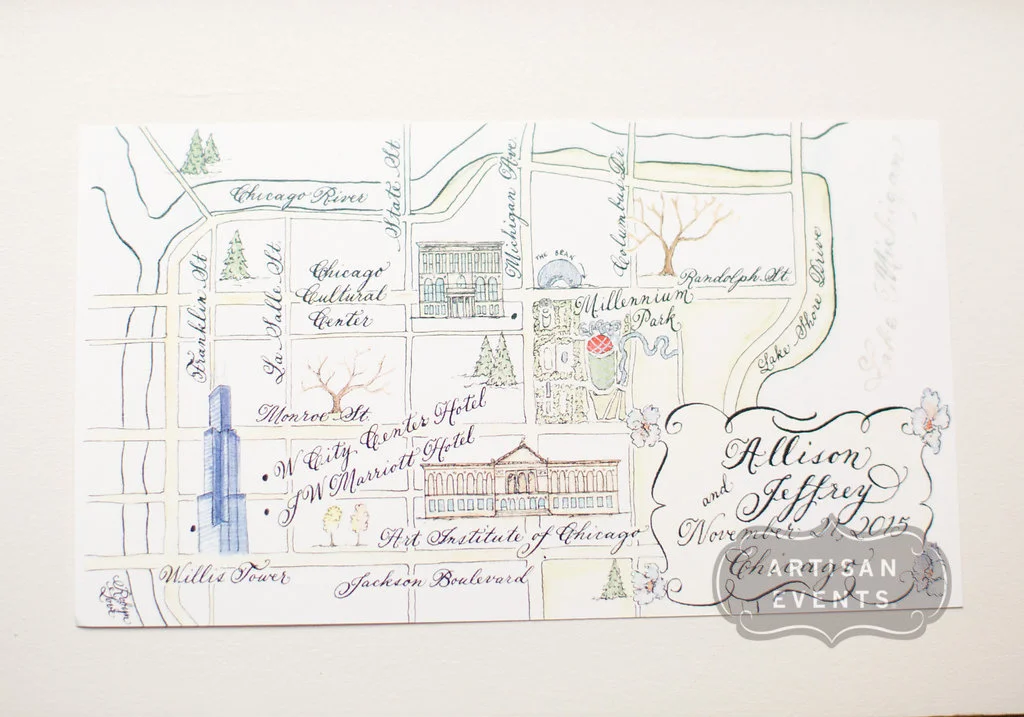 Chicago River
State St.
Michigan Ave
Columbus Dr.
THE BEAN
Randolph St.
Lake Michigan
Franklin St
La Salle St.
Chicago
Cultural
Center
Millennium
Park
Lake Shore Drive
Monroe St.
W City Center Hotel
JW Marriott Hotel
Art Institute of Chicago
Willis Tower
Jackson Boulevard
Allison
and
Jeffrey
November 21, 2015
Chicago
ARTISAN
EVENTS